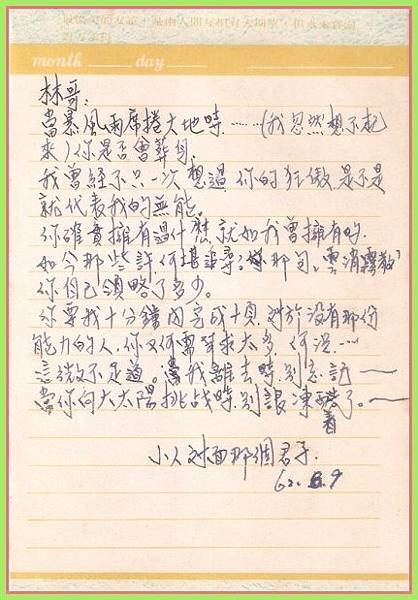 month day
林哥:
當暴風雨席捲大地時……(我忽然想不起
來)你是否會葬身
我曾經不只一次想過你的狂傲是不是
就代表我的無能。
你確實擁有過什麼就如我曾擁有的
如今那些許何堪追尋。雲消霧散
你自己領略了多少。
你要我十分鐘內完成十項 對於没有那份
能力的人,你又何需苛求太多,何況…
這微不足道。當我離去時,別忘記——
當你向大太陽挑战時,別讓凍著了。——
小人对面那個君子.
62. 6. 9